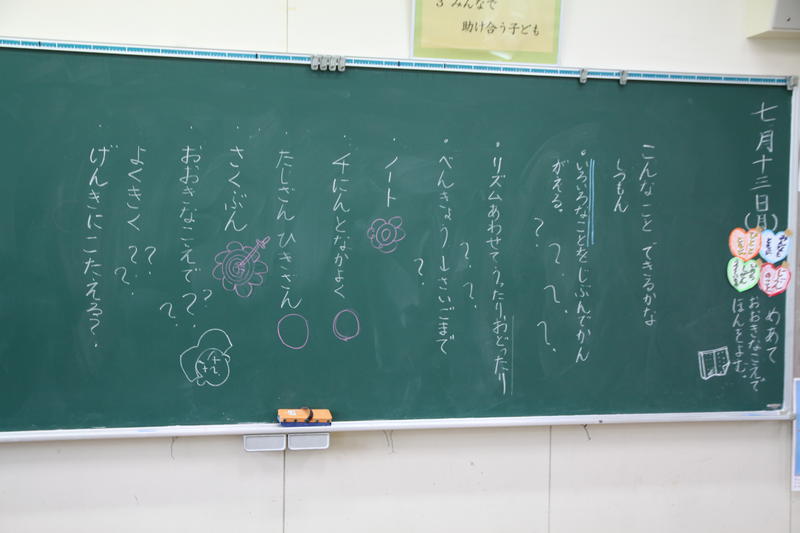 3 みんなで
助け合う子ども
七月十三日(月)
めあて
おおきなこえで
ほんをよむ。
こんなこと できるかな
しつもん
・いろいろなことをじぶんでかん
がえる。???
・リズムあわせて、うったりおどったり
??
・べんきょう→さいごまで
?
・ノート
・4にんとなかよく
・たしざん ひきざん
・さくぶん
・おおきなこえで??
?
・よくきく??
?
・げんきにこたえる?.